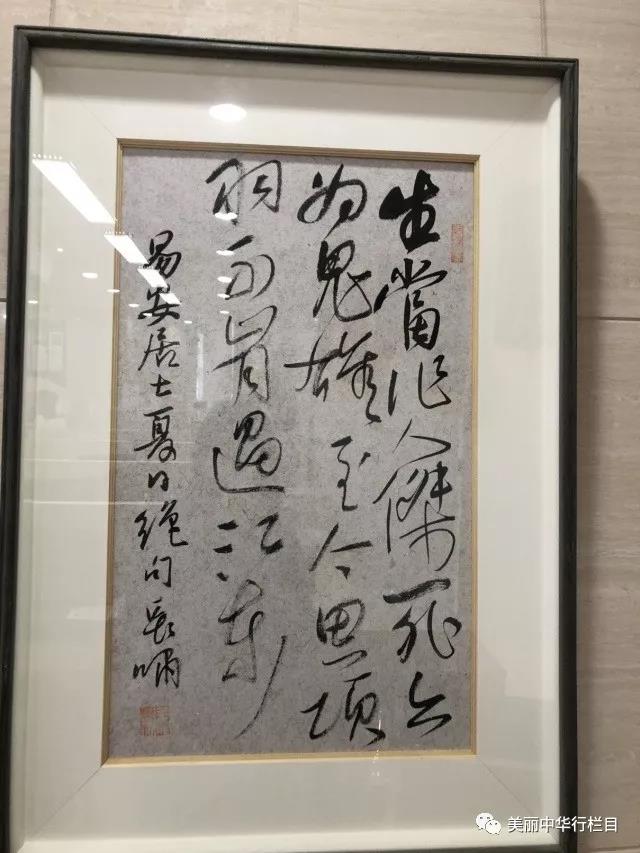 生當作人傑死亦
為鬼雄至今思項
羽不肯過江東
易安居士夏日絕句長嘯
美丽中华行栏目